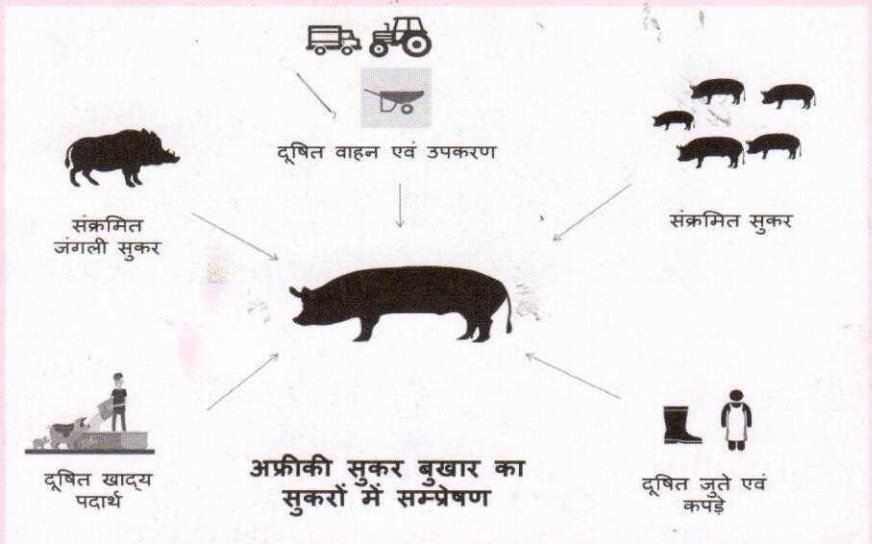 दूषित वाहन एवं उपकरण
संक्रमित
जंगली सुकर
संक्रमित सुकर
दूषित खाद्य
पदार्थ
अफ्रीकी सुकर बुखार का
सुकरों में सम्प्रेषण
दूषित जुते एवं
कपड़े